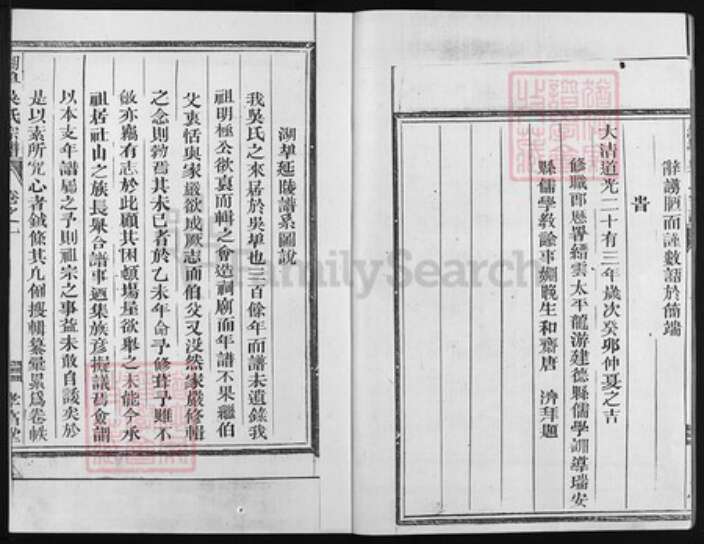 辭謭陋而謹數語於簡端
旹
大清道光二十有三年歲次癸卯仲夏之吉
修職郎歷署縉雲太平龍游建德縣儒學訓導瑞安
縣儒學教諭事姻晚生和齋唐 濟拜題
湖埠延陵譜系圖說
我吳氏之來居於吳埠也三百餘年而譜未遺錄我
祖明極公欲裒而輯之會造祠廟而年譜不果繼伯
父衷恬與家嚴欲成厥志而伯父又沒然家嚴修輯
之念則勃焉其未已者於乙未年命予修葺予雖不
敏亦竊有志於此顧其困頓場屋欲舉之未能今承
祖居社山之族長舉合譜事廼集族彥提議焉僉謂
以本支年譜屬之予則祖宗之事益未敢自諉矣於
是以素所究心者鉞條其凡例搜輯纂彙累爲卷帙
吳氏宗譜 卷之一
FamilySearch